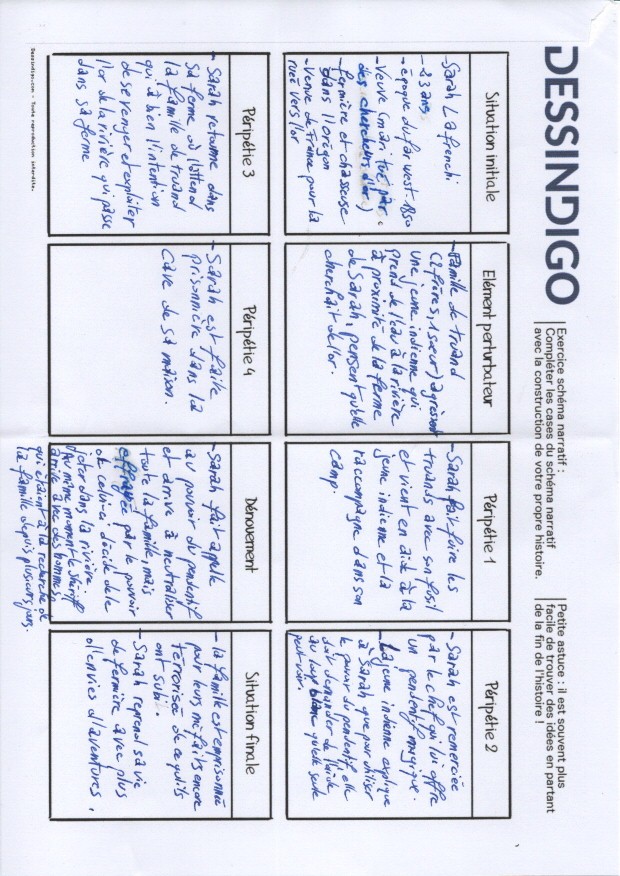 DESSINDIGO
Exercice schéma narratif :
Compléter les cases du schéma narratif
avec la construction de votre propre histoire.
Petite astuce : il est souvent plus
facile de trouver des idées en partant
de la fin de l'histoire !
Situation initiale
- Sarah Lafrenchi
- 23 ans
- époque du far west - 1850
- Veuve (mari tué par
des chercheurs d'or)
- fermière et chasseuse
dans l'Orégon
- Venue de France pour la
ruée vers l'or
Elément perturbateur
- Famille de truand
(2 frères, 1 seur) agressent
une jeune indienne qui
prend de l'eau à la rivière
à proximité de la ferme
de Sarah, pensent qu'elle
cherchait de l'or.
Péripétie 1
- Sarah fait fuire les
truands avec son fusil
et vient en aide à la
jeune indienne et la
raccompagne dans son
camp.
Péripétie 2
- Sarah est remerciée
par le chef qui lui offre
un pendentif magique.
- La jeune indienne explique
à Sarah que pour utiliser
le pouvoir du pendentif, elle
doit demander de l'aide
au loup blanc qu'elle seule
peut voir.
Péripétie 3
- Sarah retourne dans
sa ferme où l'attend
la famille de truand
qui a bien l'intention
de se venger et exploiter
l'or de la rivière qui passe
dans sa ferme
Péripétie 4
- Sarah est faite
prisonnière dans la
cave de sa maison.
Dénouement
- Sarah fait appelle
au pouvoir du pendentif
et arrive à neutraliser
toute la famille, mais
effrayée par le pouvoir
de celui-ci décide de le
jeter dans la rivière.
Au même moment le shérif
arrive avec des hommes
qui étaient à la recherche de
la famille depuis plusieurs jours.
Situation finale
- la famille est emprisonnée
pour leurs méfaits encore
terrorisée de ce qu'ils
ont subi.
- Sarah reprend sa vie
de fermière avec plus
d'envies d'aventures.
Dessindigo.com - Toute reproduction interdite.